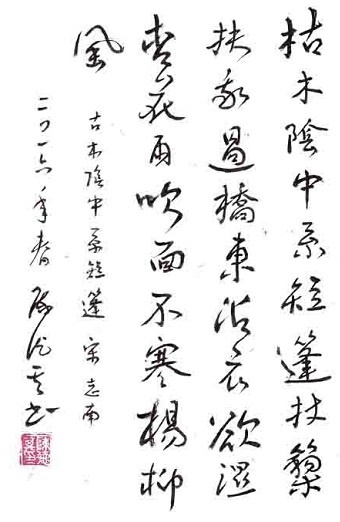 枯木陰中系短篷杖藜
扶我過橋東沾衣欲濕
杏花雨吹面不寒楊柳
風
古木陰中系短篷 宋 志南
二〇一六年春 书